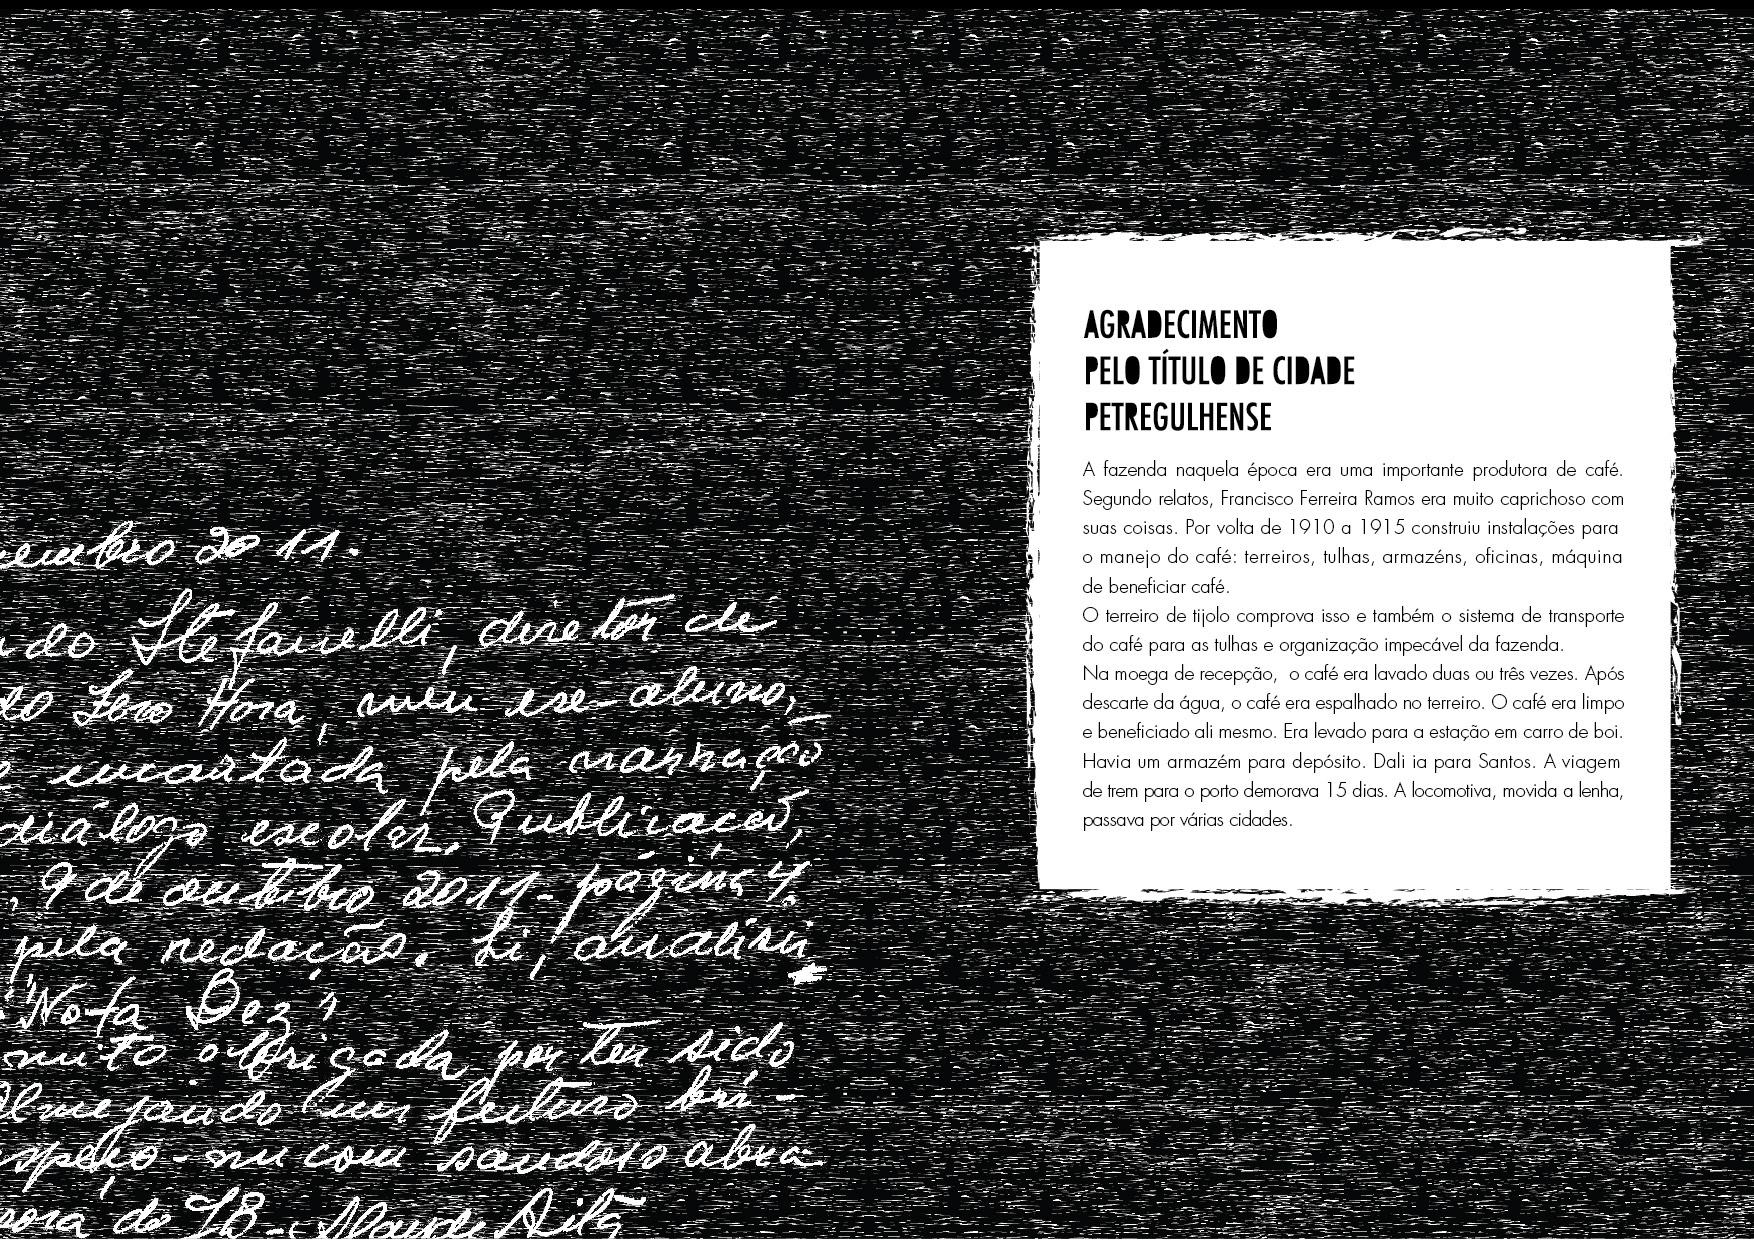 embro 2011.
do Stefanelli, diretor de
do Zero Hora, meu ex-aluno,
encantada pela narração
diálogo escolar. Publicação,
, 9 de outubro 2011 - página 4.
pela redação. Li, analisei,
"Nota Dez"
muito obrigada por ter sido
Almejando um futuro bri-
despeço-me com saudoso abra-
sora do
AGRADECIMENTO
PELO TÍTULO DE CIDADE
PETREGULHENSE
A fazenda naquela época era uma importante produtora de café.
Segundo relatos, Francisco Ferreira Ramos era muito caprichoso com
suas coisas. Por volta de 1910 a 1915 construiu instalações para
o manejo do café: terreiros, tulhas, armazéns, oficinas, máquina
de beneficiar café.
O terreiro de tijolo comprova isso e também o sistema de transporte
do café para as tulhas e organização impecável da fazenda.
Na moega de recepção, o café era lavado duas ou três vezes. Após
descarte da água, o café era espalhado no terreiro. O café era limpo
e beneficiado ali mesmo. Era levado para a estação em carro de boi.
Havia um armazém para depósito. Dali ia para Santos. A viagem
de trem para o porto demorava 15 dias. A locomotiva, movida a lenha,
passava por várias cidades.